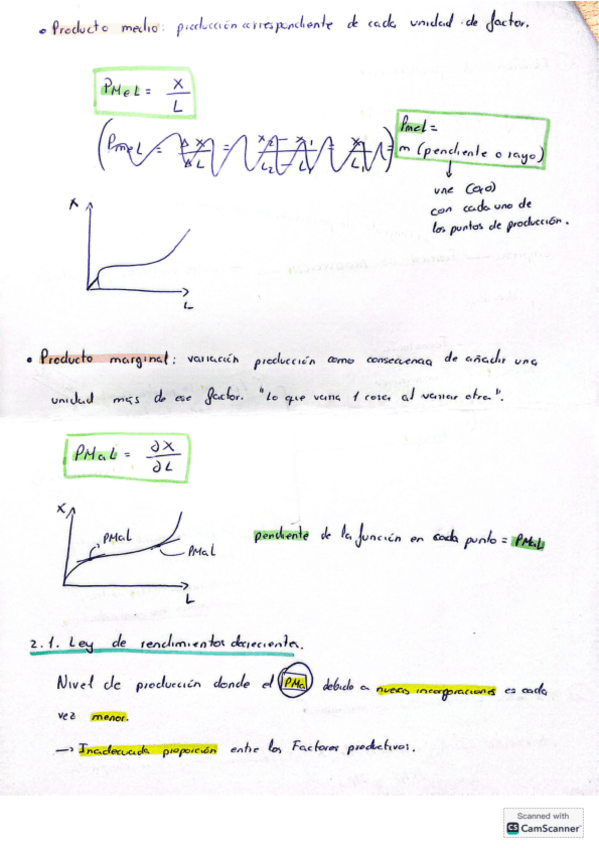 • Producto medio: producción correspondiente de cada unidad de factor.
PMeL = X / L
(PmeL = ΔX / ΔL = X2 - X1 / L2 - L1 = X / L) 
PmeL =
m (pendiente o rayo)
↓
une (0,0)
con cada uno de
los puntos de producción.
X
L
• Producto marginal: variación producción como consecuencia de añadir una
unidad más de ese factor. "Lo que varía 1 cosa al variar otra".
PMaL = ∂X / ∂L
X
PMaL
PMaL
L
pendiente de la función en cada punto = PMaL
2.1. Ley de rendimientos decrecientes.
Nivel de producción donde el PMa debido a nuevas incorporaciones es cada
vez menor.
→ Inadecuada proporción entre los Factores productivos.
Scanned with
CS CamScanner